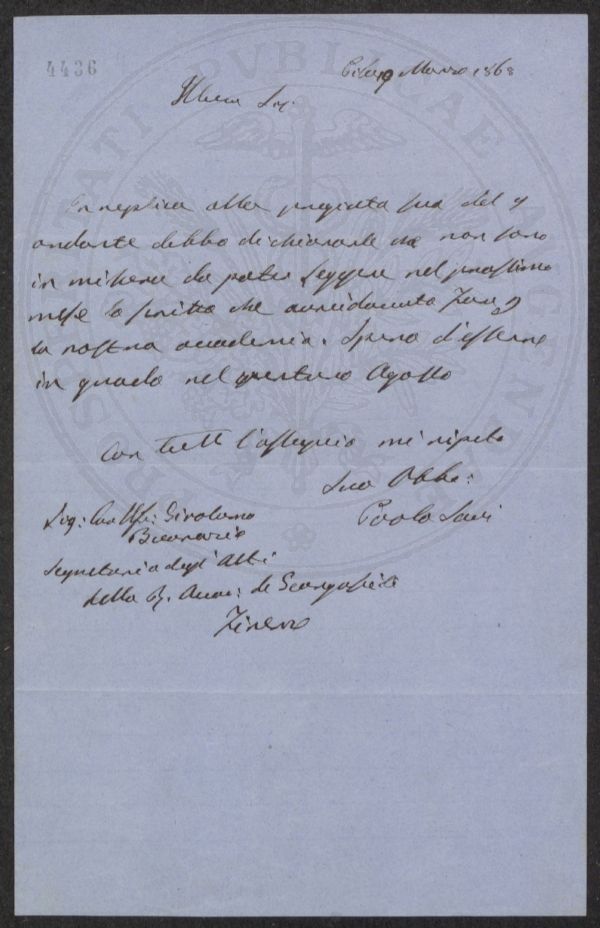 4436
Pisa 9 Marzo 1868
Illmo Sig:
In replica alla pregiata sua del 7
andante debbo dichiararle che non sono
in misura da poter leggere nel prossimo
mese lo scritto che
la nostra accademia. Spero d'esserne
in grado nel venturo Agosto
Con tutto l'ossequio mi ripeto
Suo Obbo:
Paolo Savi
Sig: Girolamo
Segretario degli Atti
della R. Accad: de Georgofili
Firenze
PROSPERITATI PVBLICAE AVGENDAE